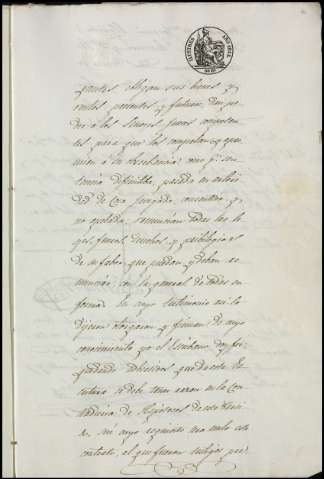 gantes obligan sus bienes y
rentas presentes y futuros, dan po-
der á los Señores Jueces competen-
tes para que les compelan y apre-
mien á su observancia como por sen-
tencia difinitiva, pasada en autori-
dad de Cosa Juzgada, consentida y
no apelada. Renuncian todas las le-
yes, fueros, derechos y privilegios
de su fabor que puedan y deban re-
nunciar con la general de todas en
forma. En cuyo testimonio así lo
dijeron otorgaron y firman de cuyo
conocimiento yo el Escribano doy fe,
quedando advertidos que de esta Es-
critura se debe tomar razon en la Con-
taduria de Hipotecas de este
sin cuyo requisito sea nulo este
contrato, el que fueron testigos